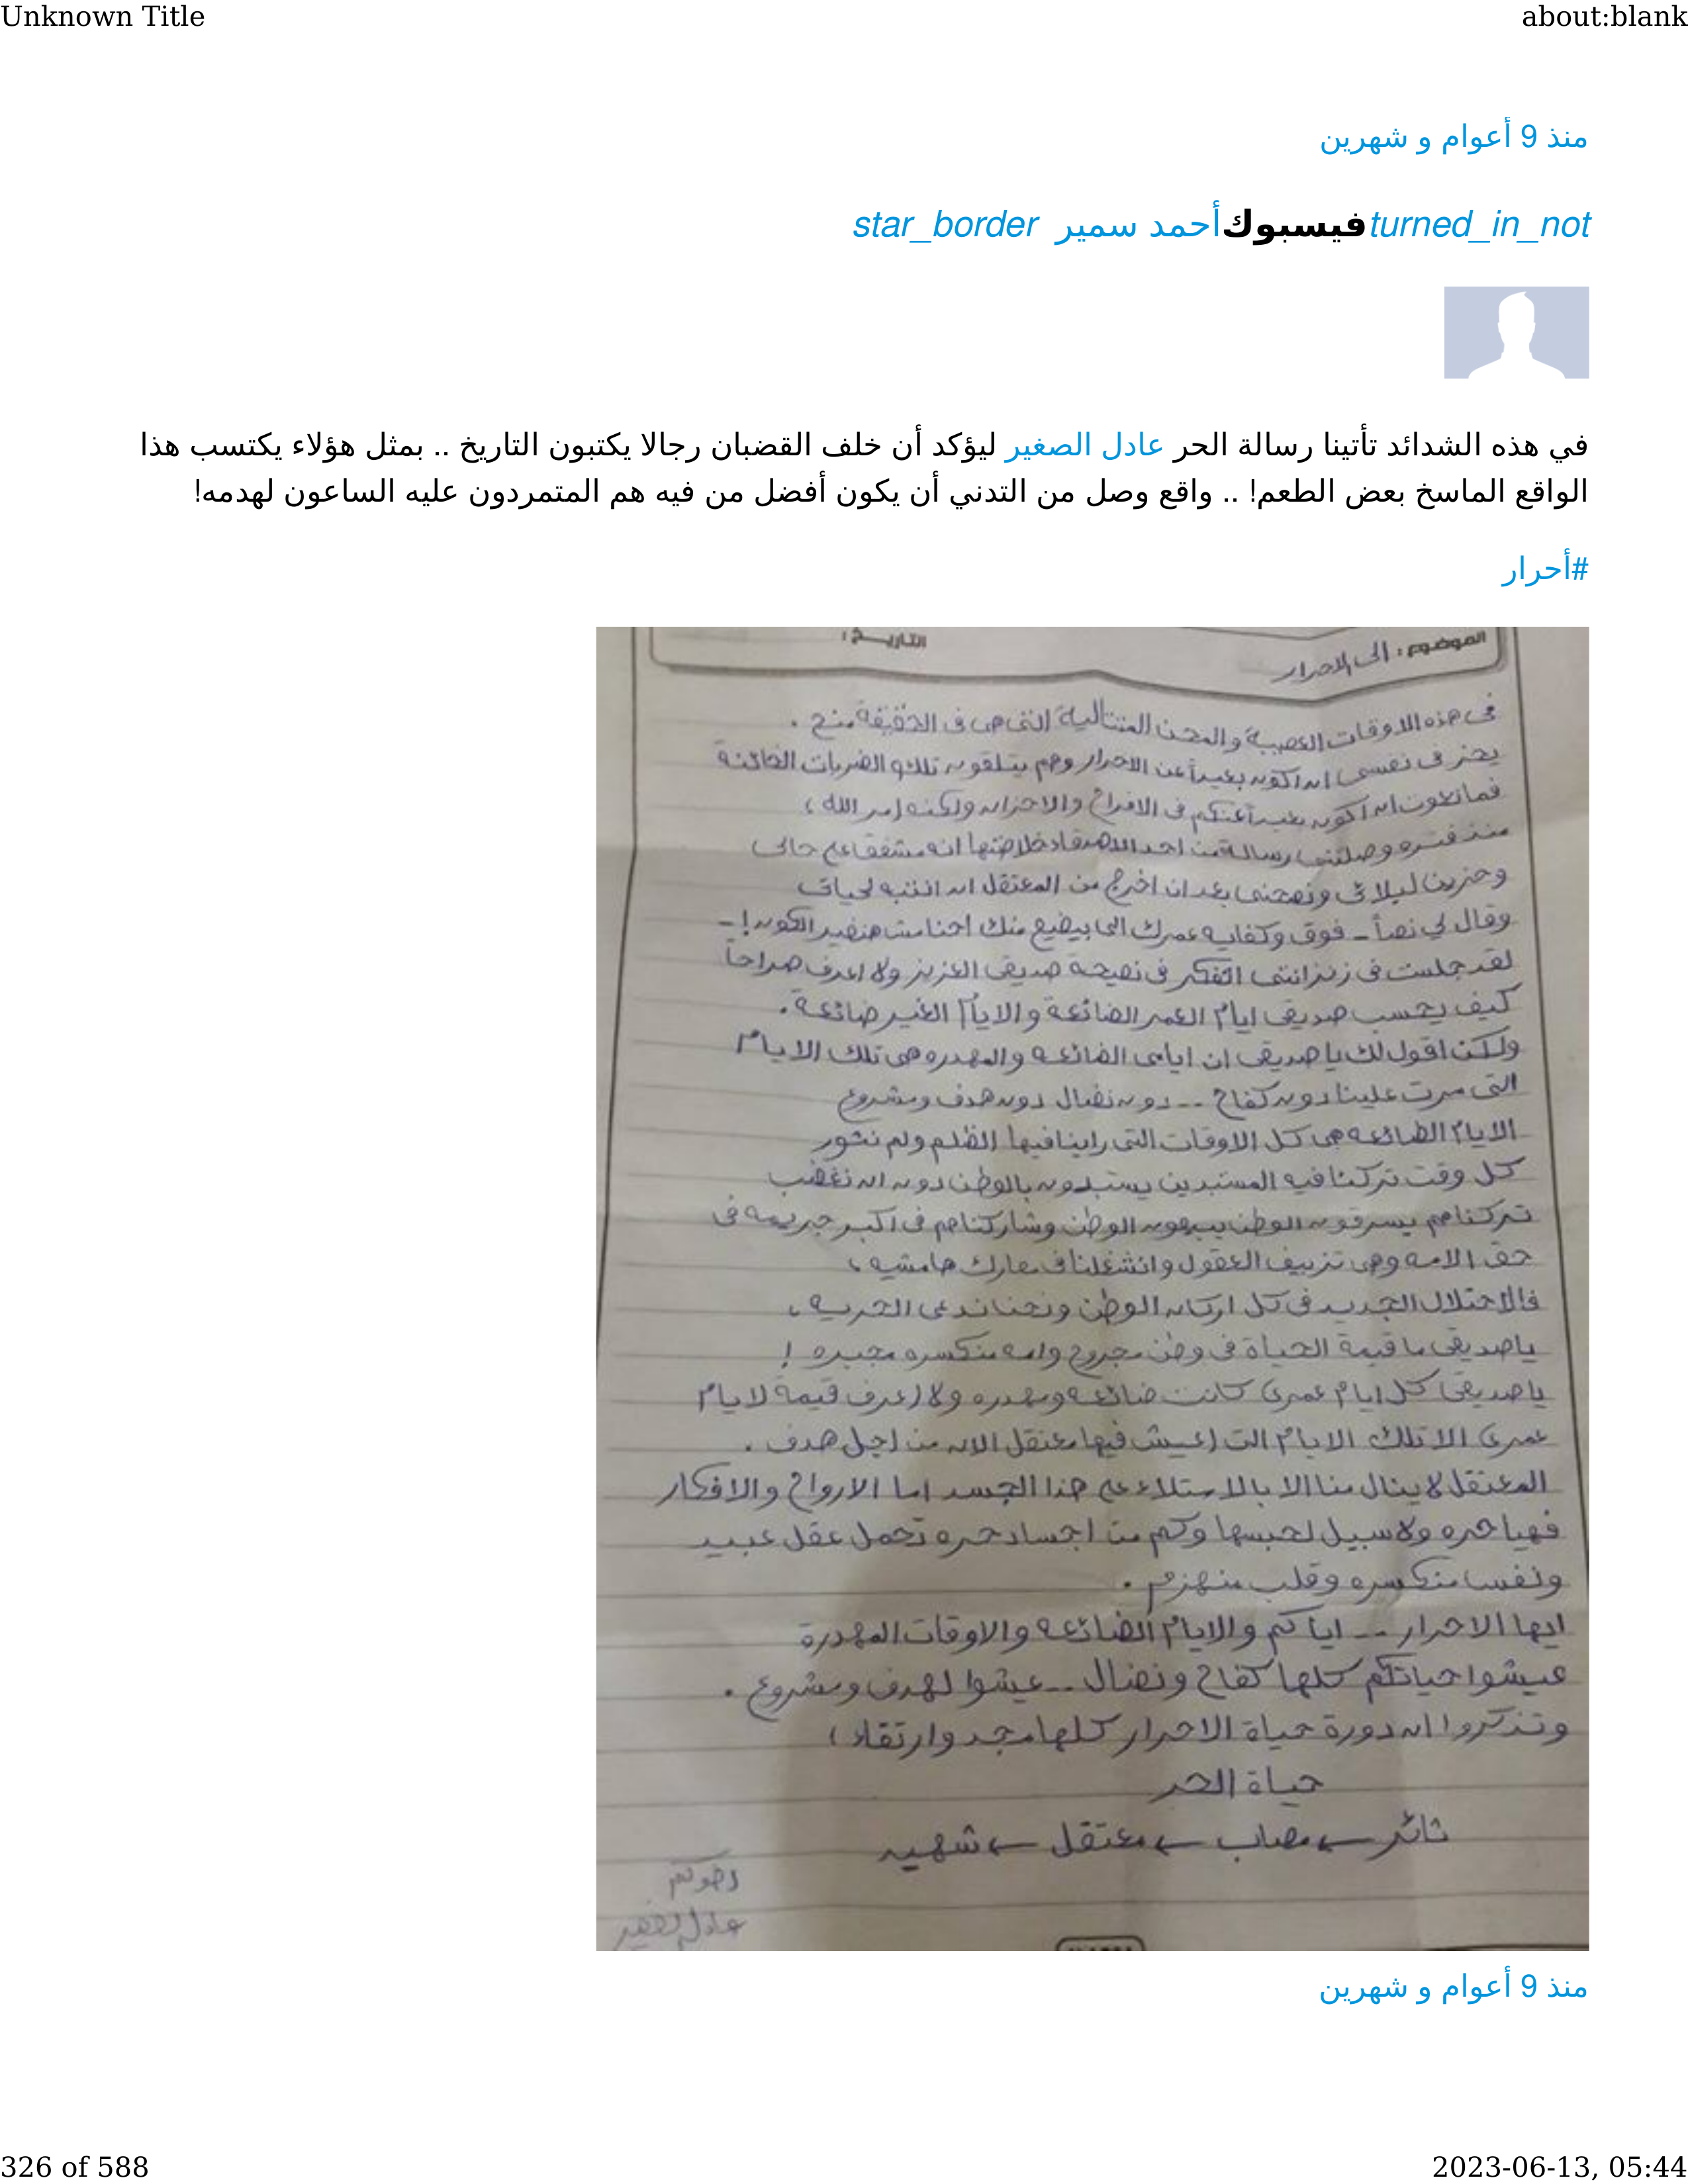 Unknown Title about:blank
منذ 9 أعوام و شهرين
turned_in_notفيسبوكأحمد سمير star_border
في هذه الشدائد تأتينا رسالة الحر عادل الصغير ليؤكد أن خلف القضبان رجالا يكتبون التاريخ .. بمثل هؤلاء يكتسب هذا
الواقع الماسخ بعض الطعم! .. واقع وصل من التدني أن يكون أفضل من فيه هم المتمردون عليه الساعون لهدمه!
#أحرار
الموضوع : الى الاحرار التاريخ :
فى هذه الاوقات العصيبة والمحن المتتالية التى هى فى الحقيقة منح .
يحز فى نفسى ان اكون بعيداً عن الاحرار وهم يتلقون تلك الضربات الخائنة
ان اكون بعيداً عنكم فى الافراح والاحزان ولكنه امر الله ،
منذ فتره وصلتنى رسالة من احد الاصدقاء خلاصتها انه مشفق على حالى
وحزين لبلائى ونصحنى بعد ان اخرج من المعتقل ان انتبه لحياتى
وقال لي نصاً - فوق وكفايه عمرك الى بيضيع منك احنا مش هنغير الكون ! -
لقد جلست فى زنزانتى افكر فى نصيحة صديقى العزيز ولا اعرف صراحاً
كيف يحسب صديقى ايام العمر الضائعة والايام الغير ضائعة .
ولكن اقول لك يا صديقى ان ايامى الضائعه والمهدره هى تلك الايام
التى مرت علينا دون كفاح -- دون نضال دون هدف ومشروع
الايام الضائعه هى كل الاوقات التى راينا فيها الظلم ولم نثور
كل وقت تركنا فيه المستبدين يستبدون بالوطن دون ان نغضب
تركناهم يسرقون الوطن يبيعون الوطن وشاركناهم فى اكبر جريمه فى
حق الامه وهى تزييف العقول وانشغلنا فى معارك هامشيه ،
فالاحتلال الجديد فى كل اركان الوطن ونحن ندعى الحريه ،
ياصديقى ما قيمة الحياة فى وطن مجروح وامه منكسره مجبره !
يا صديقى كل ايام عمرى كانت ضائعه ومهدره ولا اعرف قيمة لايام
عمرى الا تلك الايام التى اعيش فيها معتقل الان من اجل هدف .
المعتقل لا ينال منا الا بالاستلاء على هذا الجسد اما الارواح والافكار
فهيا حره ولا سبيل لحبسها وكم من اجساد حره تحمل عقل عبيد
ونفسا منكسره وقلب منهزم .
ايها الاحرار -- اياكم والايام الضائعه والاوقات المهدرة
عيشوا حياتكم كلها كفاح ونضال -- عيشوا لهدف ومشروع .
وتذكروا ان دورة حياة الاحرار كلها مجد وارتقاء ،
حياة الحر
ثائر ← مصاب ← معتقل ← شهيد
اخوكم
عادل الصغير
منذ 9 أعوام و شهرين
326 of 588 2023-06-13, 05:44